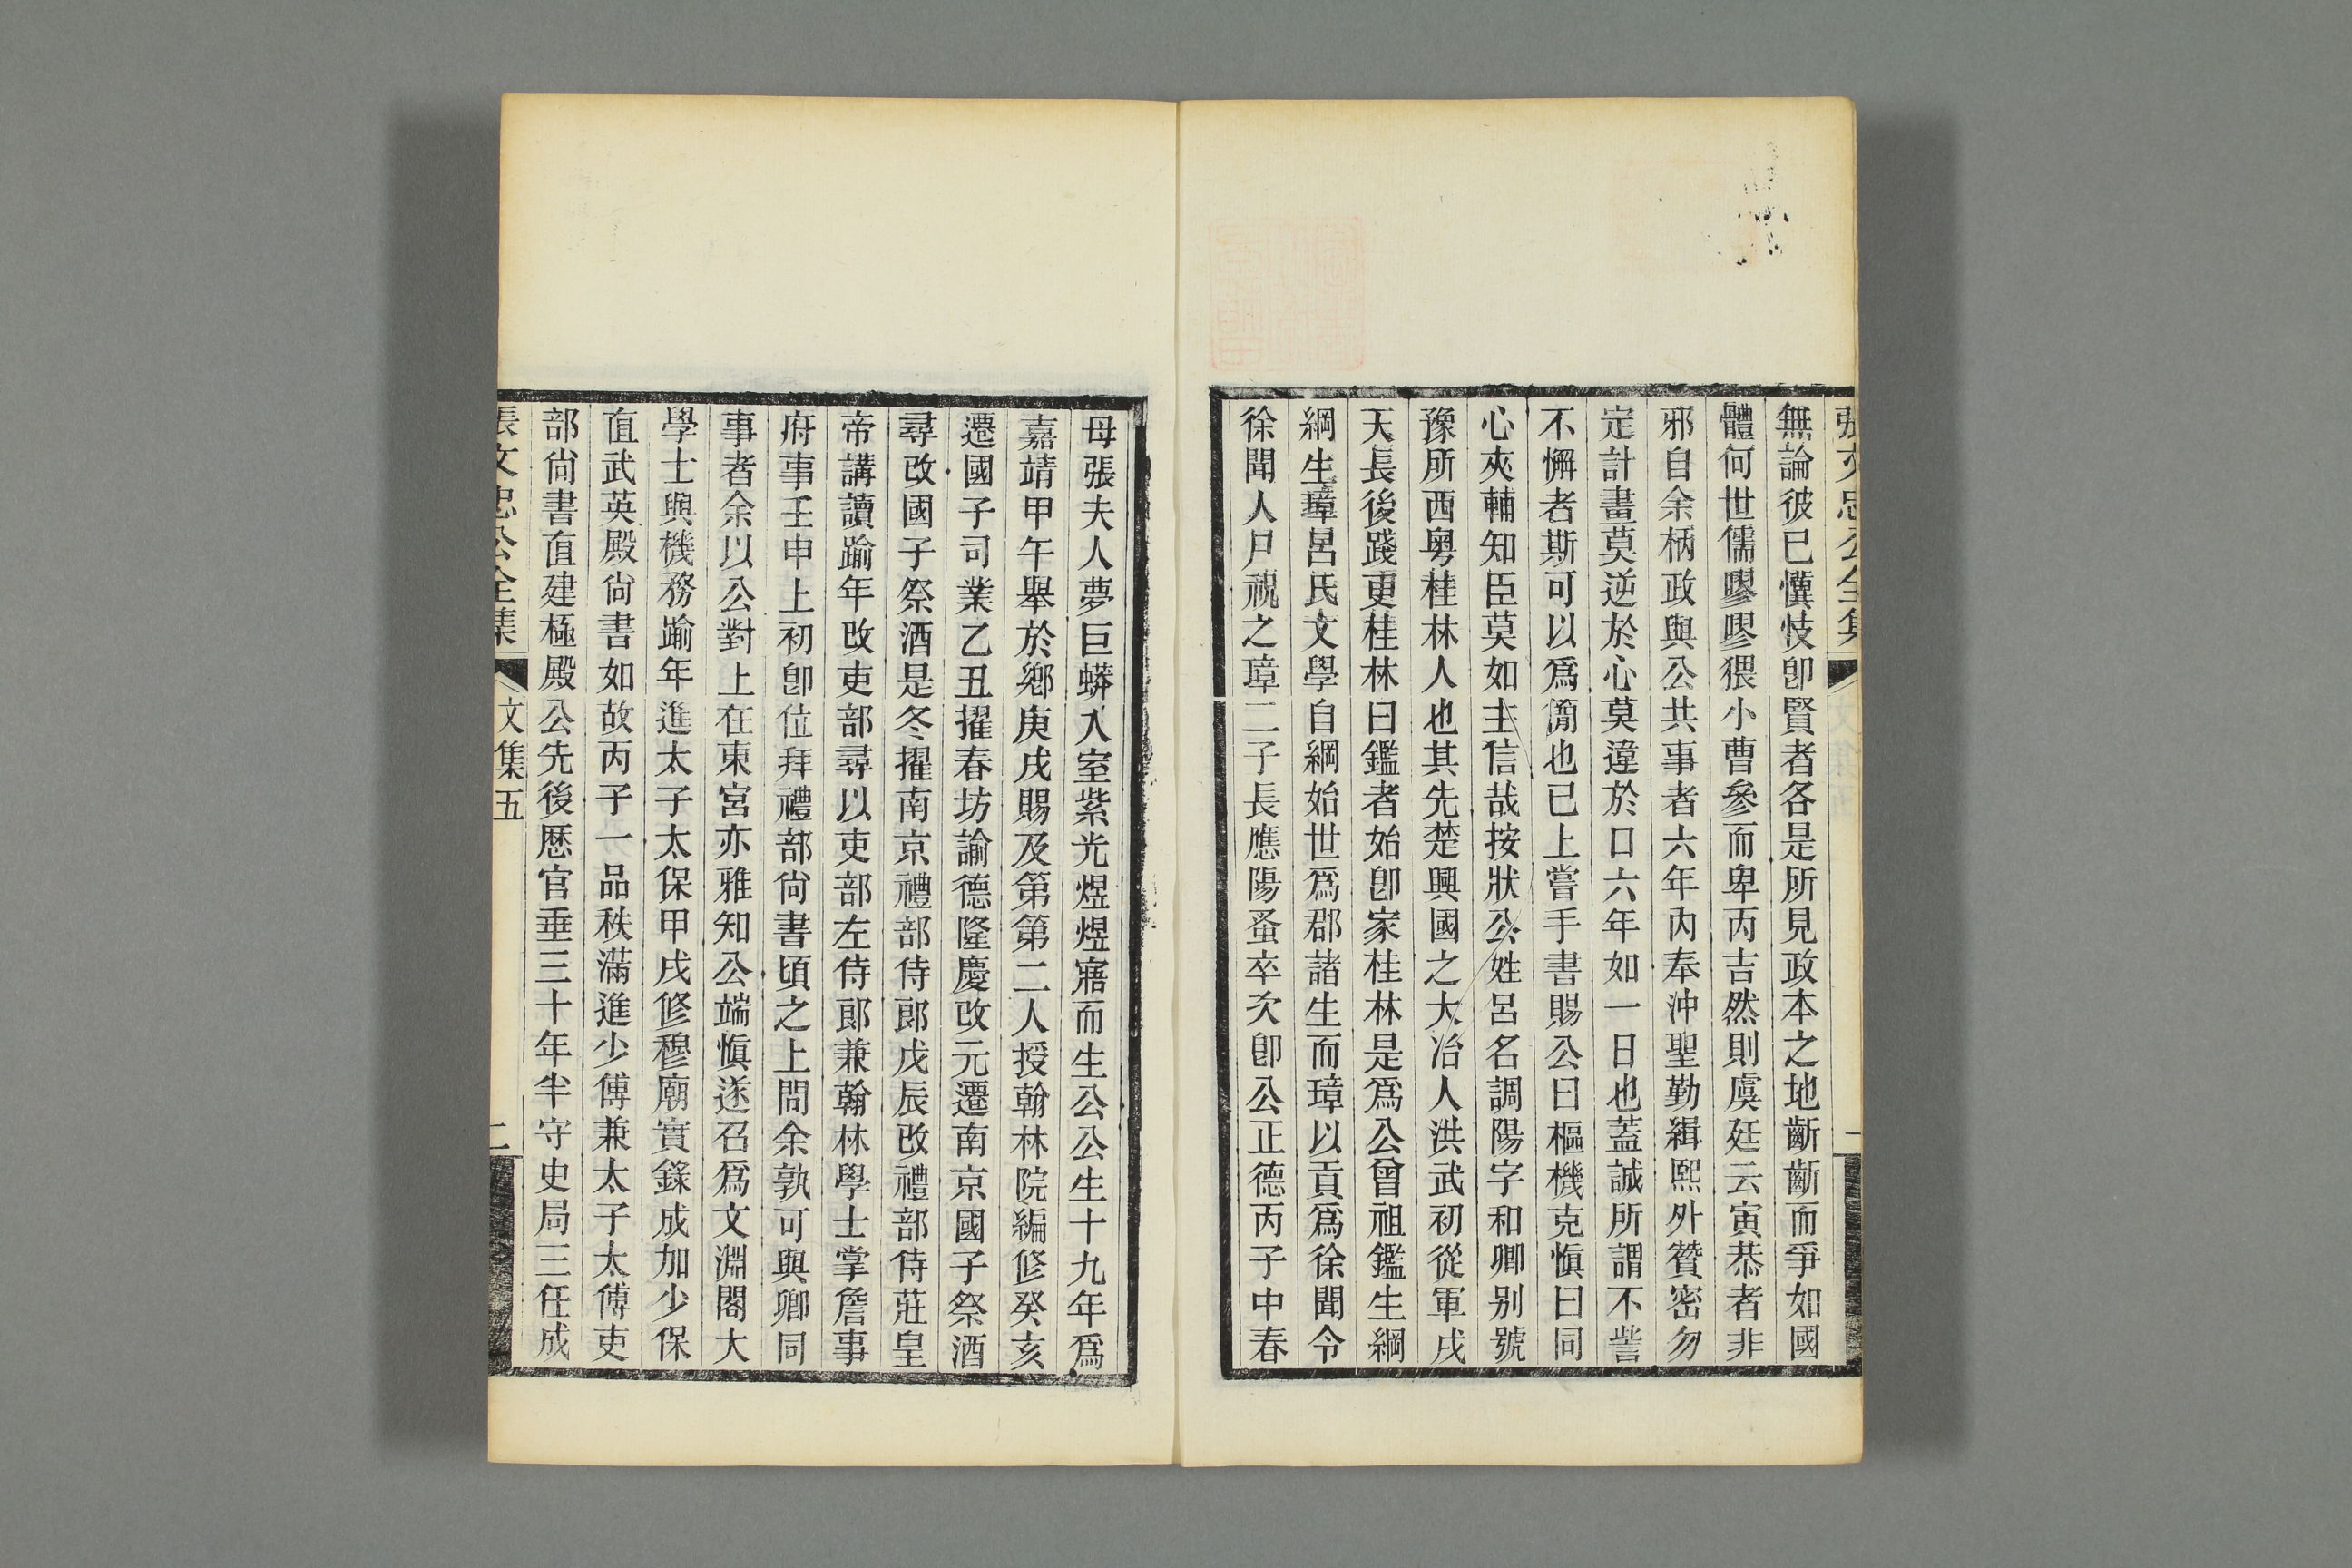 張文忠公全集
無論彼已懻忮卽賢者各是所見政本之地齗齗而爭如國
體何世儒嘐嘐猥小曹參而卑丙吉然則虞廷云寅恭者非
邪自余柄政與公共事者六年內奉沖聖勤緝熙外贊密勿
定計畫莫逆於心莫違於口六年如一日也蓋誠所謂不訾
不懈者斯可以爲簡也已上嘗手書賜公曰樞機克愼曰同
心夾輔知臣莫如主信哉按狀公姓呂名調陽字和卿别號
豫所西粤桂林人也其先楚興國之大冶人洪武初從軍戍
天長後踐更桂林曰鑑者始卽家桂林是爲公曾祖鑑生綱
綱生璋呂氏文學自綱始世爲郡諸生而璋以貢爲徐聞令
徐聞人尸祝之璋二子長應陽蚤卒次卽公正德丙子中春
母張夫人夢巨蟒入室紫光煜煜寤而生公公生十九年爲
嘉靖甲午舉於鄉庚戌賜及第第二人授翰林院編修癸亥
遷國子司業乙丑擢春坊諭德隆慶改元遷南京國子祭酒
尋改國子祭酒是冬擢南京禮部侍郎戊辰改禮部侍莊皇
帝講讀踰年改吏部尋以吏部左侍郎兼翰林學士掌詹事
府事壬申上初卽位拜禮部尙書頃之上問余孰可與卿同
事者余以公對上在東宮亦雅知公端愼遂召爲文淵閣大
學士與機務踰年進太子太保甲戌修穆廟實錄成加少保
直武英殿尙書如故丙子一品秩滿進少傅兼太子太傅吏
部尙書直建極殿公先後歷官垂三十年半守史局三任成
張文忠公全集
文集五
二